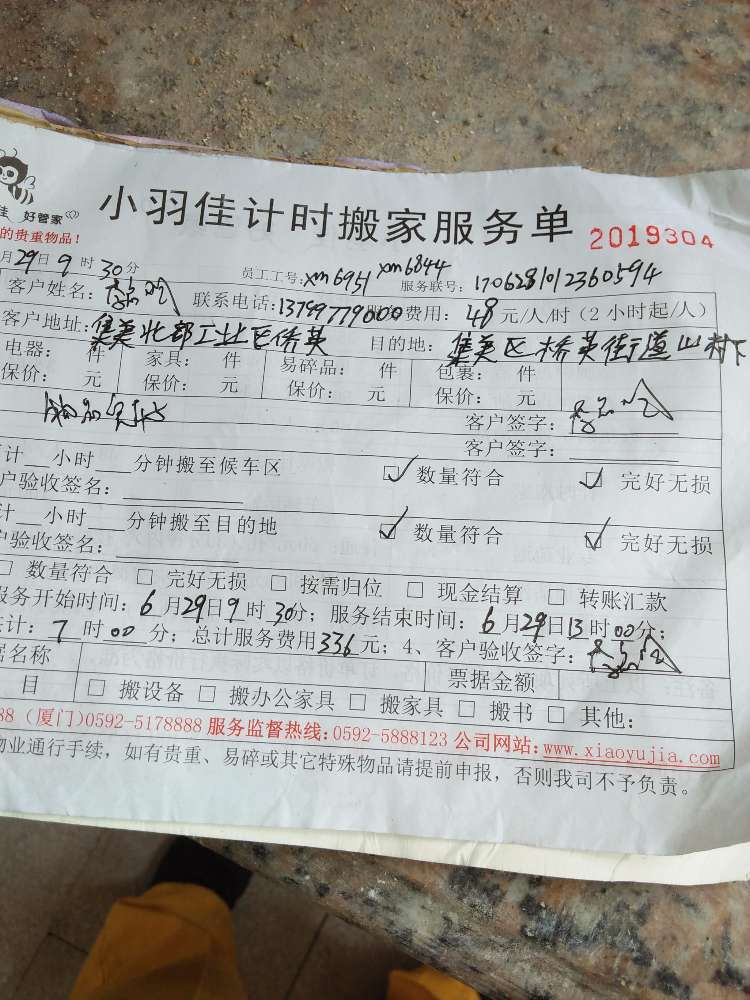 佳 好管家
小羽佳计时搬家服务单 2019304
的贵重物品！
月29日9时30分 员工工号：xm6951 xm6844 服务联号：1706281012360594
客户姓名： 联系电话：13799779000 费用：48元/人/时（2小时起/人）
客户地址：集美北部工业区侨英 目的地：集美区桥英街道山村下
电器： 件 家具： 件 易碎品： 件 包裹： 件
保价： 元 保价： 元 保价： 元 保价： 元
客户签字：
客户签字：
计 小时 分钟搬至候车区 ☑ 数量符合 ☑ 完好无损
户验收签名：
计 小时 分钟搬至目的地 ☑ 数量符合 ☑ 完好无损
户验收签名：
□ 数量符合 □ 完好无损 □ 按需归位 □ 现金结算 □ 转账汇款
服务开始时间：6月29日9时30分；服务结束时间：6月29日13时00分；
计：7时00分；总计服务费用336元；4、客户验收签字：
据名称 票据金额
目 □ 搬设备 □ 搬办公家具 □ 搬家具 □ 搬书 □ 其他：
88（厦门）0592-5178888 服务监督热线：0592-5888123 公司网站：www.xiaoyujia.com
物业通行手续，如有贵重、易碎或其它特殊物品请提前申报，否则我司不予负责。